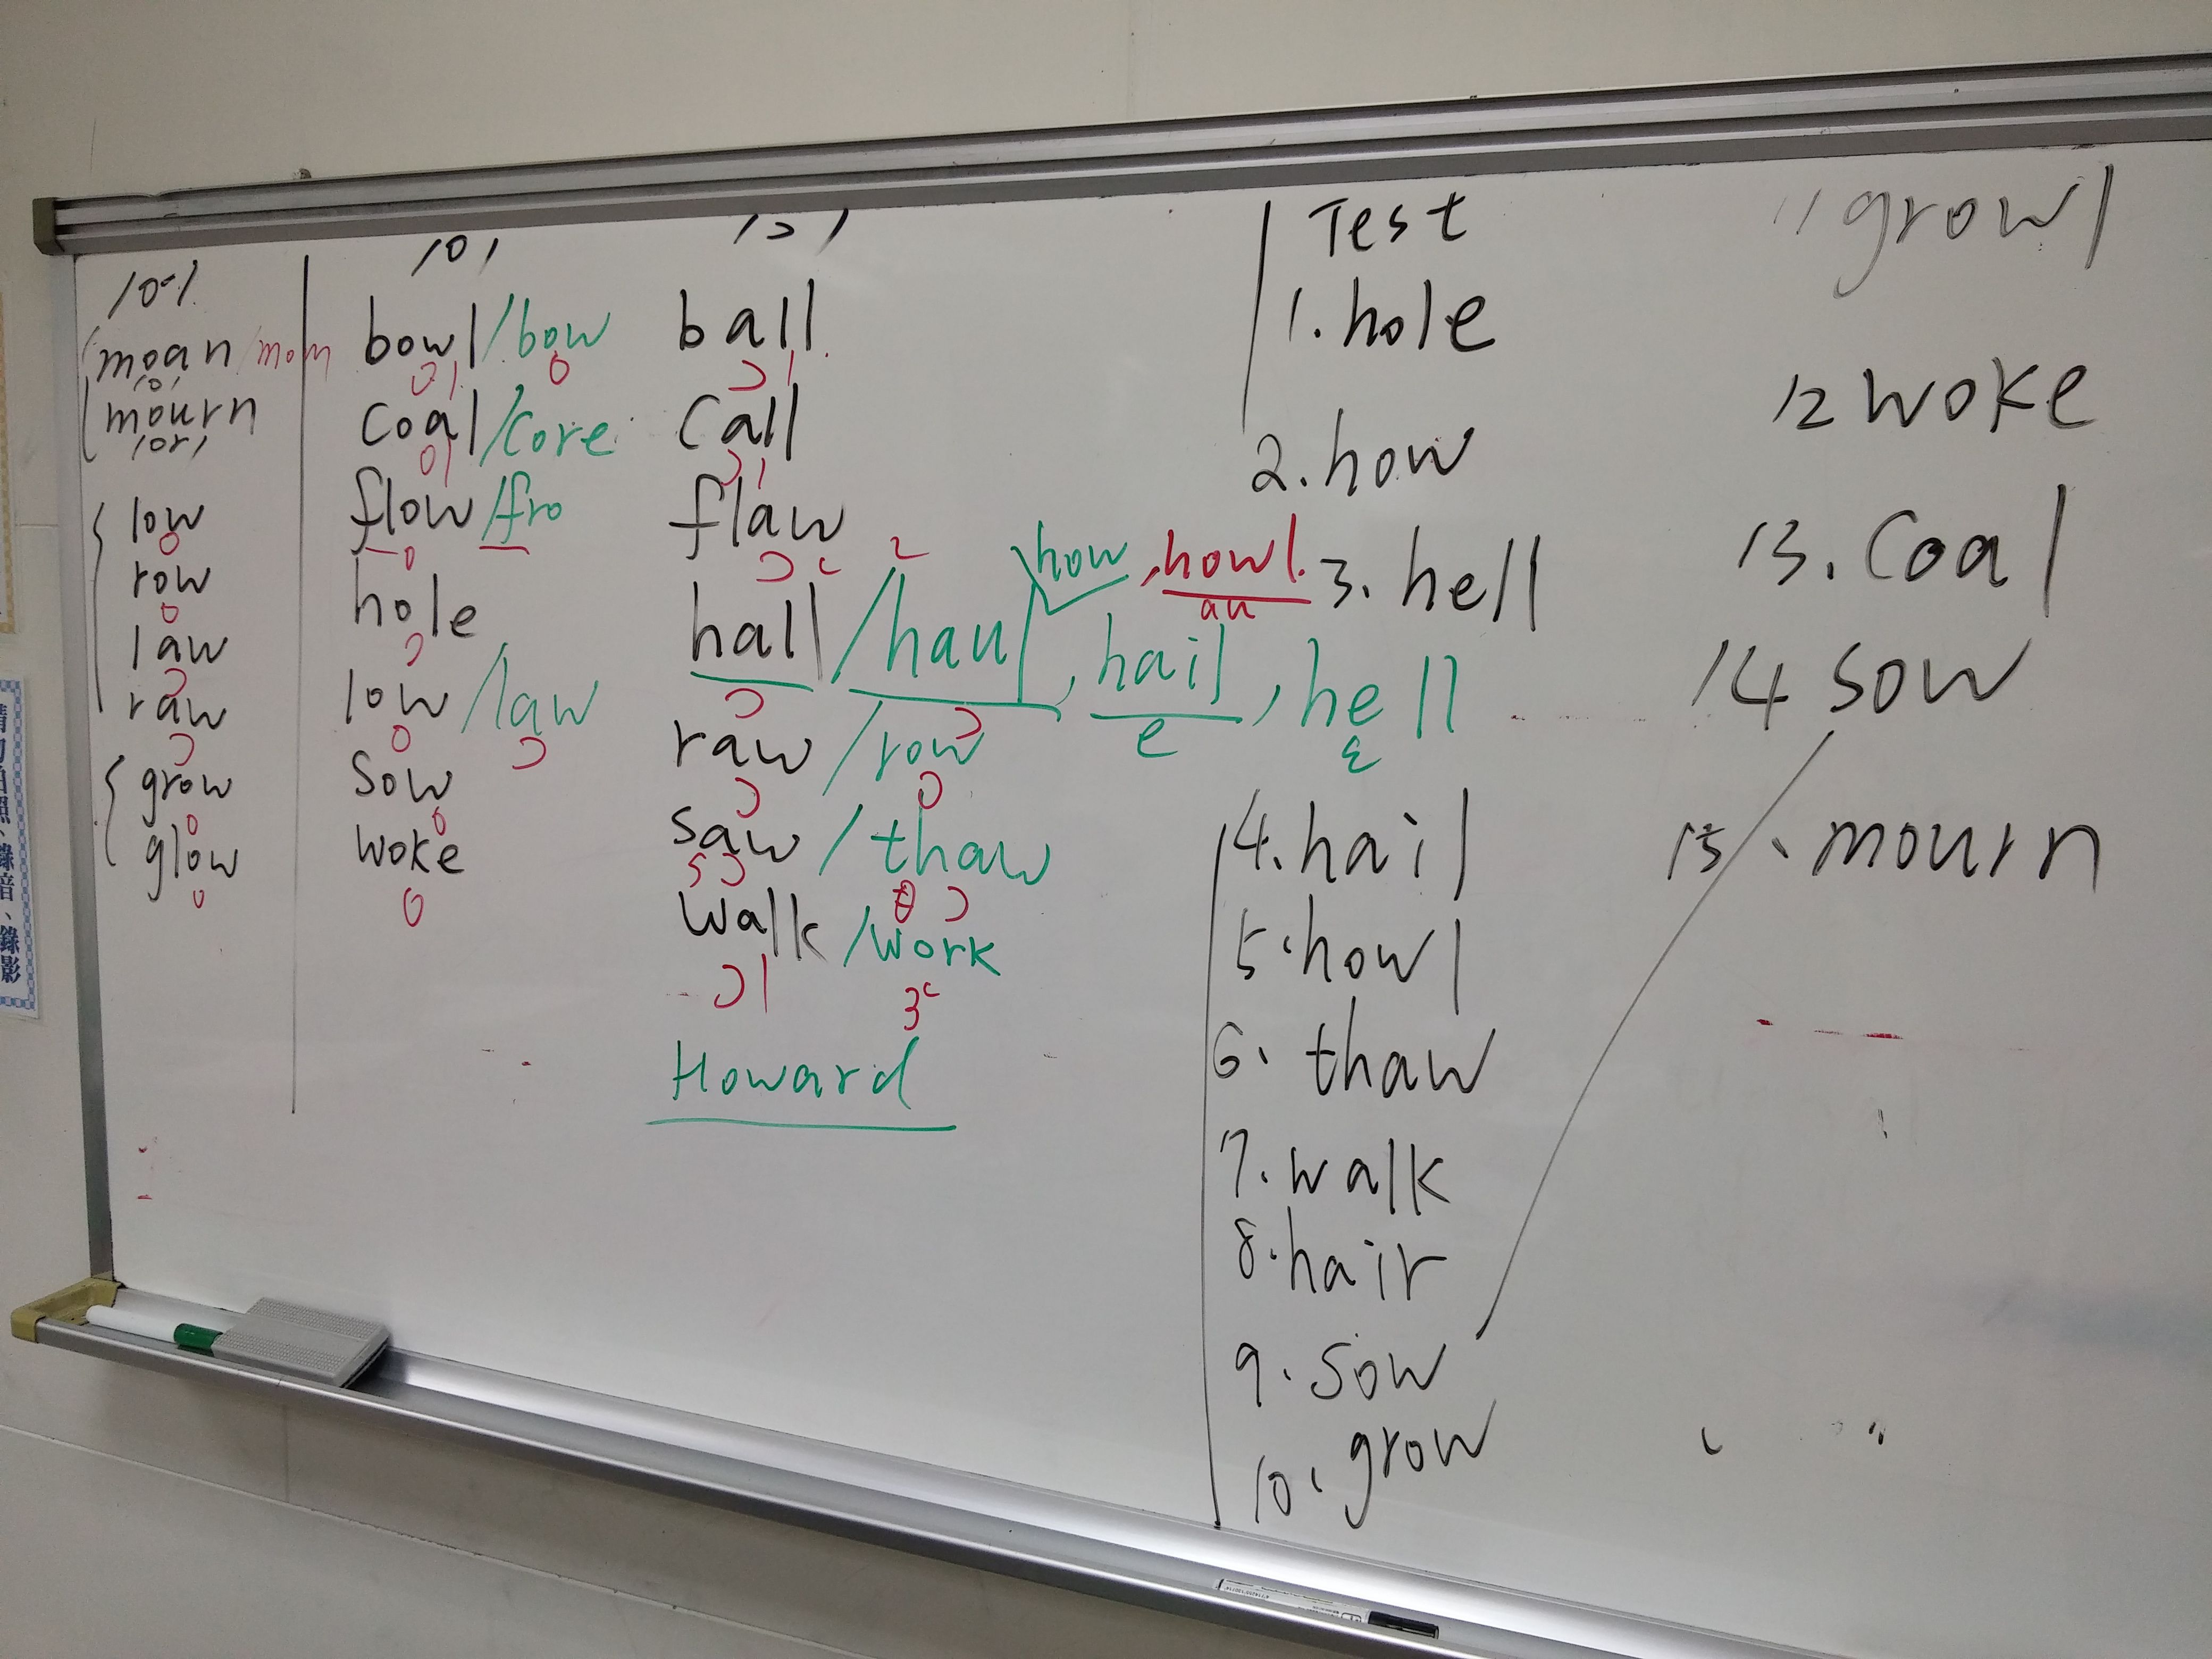 /o-/
moan/mom
/o/
mourn
/or/
low
o
row
o
law
ɔ
raw
ɔ
grow
o
glow
o
/o/
bowl/bow
ol o
coal/core
ol
flow/fro
o
hole
o
low/law
o ɔ
sow
o
woke
o
/ɔ/
ball
ɔl
call
ɔl
flaw
ɔ
hall/haul, hail, hell
ɔ ɔ e ɛ
how, howl
au
raw/row
ɔ o
saw/thaw
sɔ θɔ
walk/work
ɔl
Howard
Test
1. hole
2. how
3. hell
4. hail
5. howl
6. thaw
7. walk
8. hair
9. sow
10. grow
11 growl
12 woke
13. coal
14 sow
15. mourn
錄音、錄影